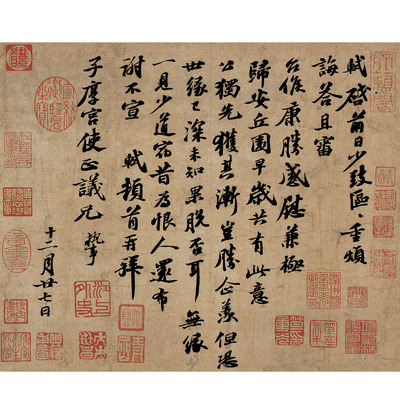 軾啓前日少致區區重煩
誨答且審
台候康勝感慰兼極
歸安丘園早歲共有此意
公獨先獲其漸豈勝企羡但恐
世緣已深未知果脫否耳無緣
一見少道宿昔為恨人還布
謝不宣 軾頓首再拜
子厚宮使正議兄 執事
十二月廿七日